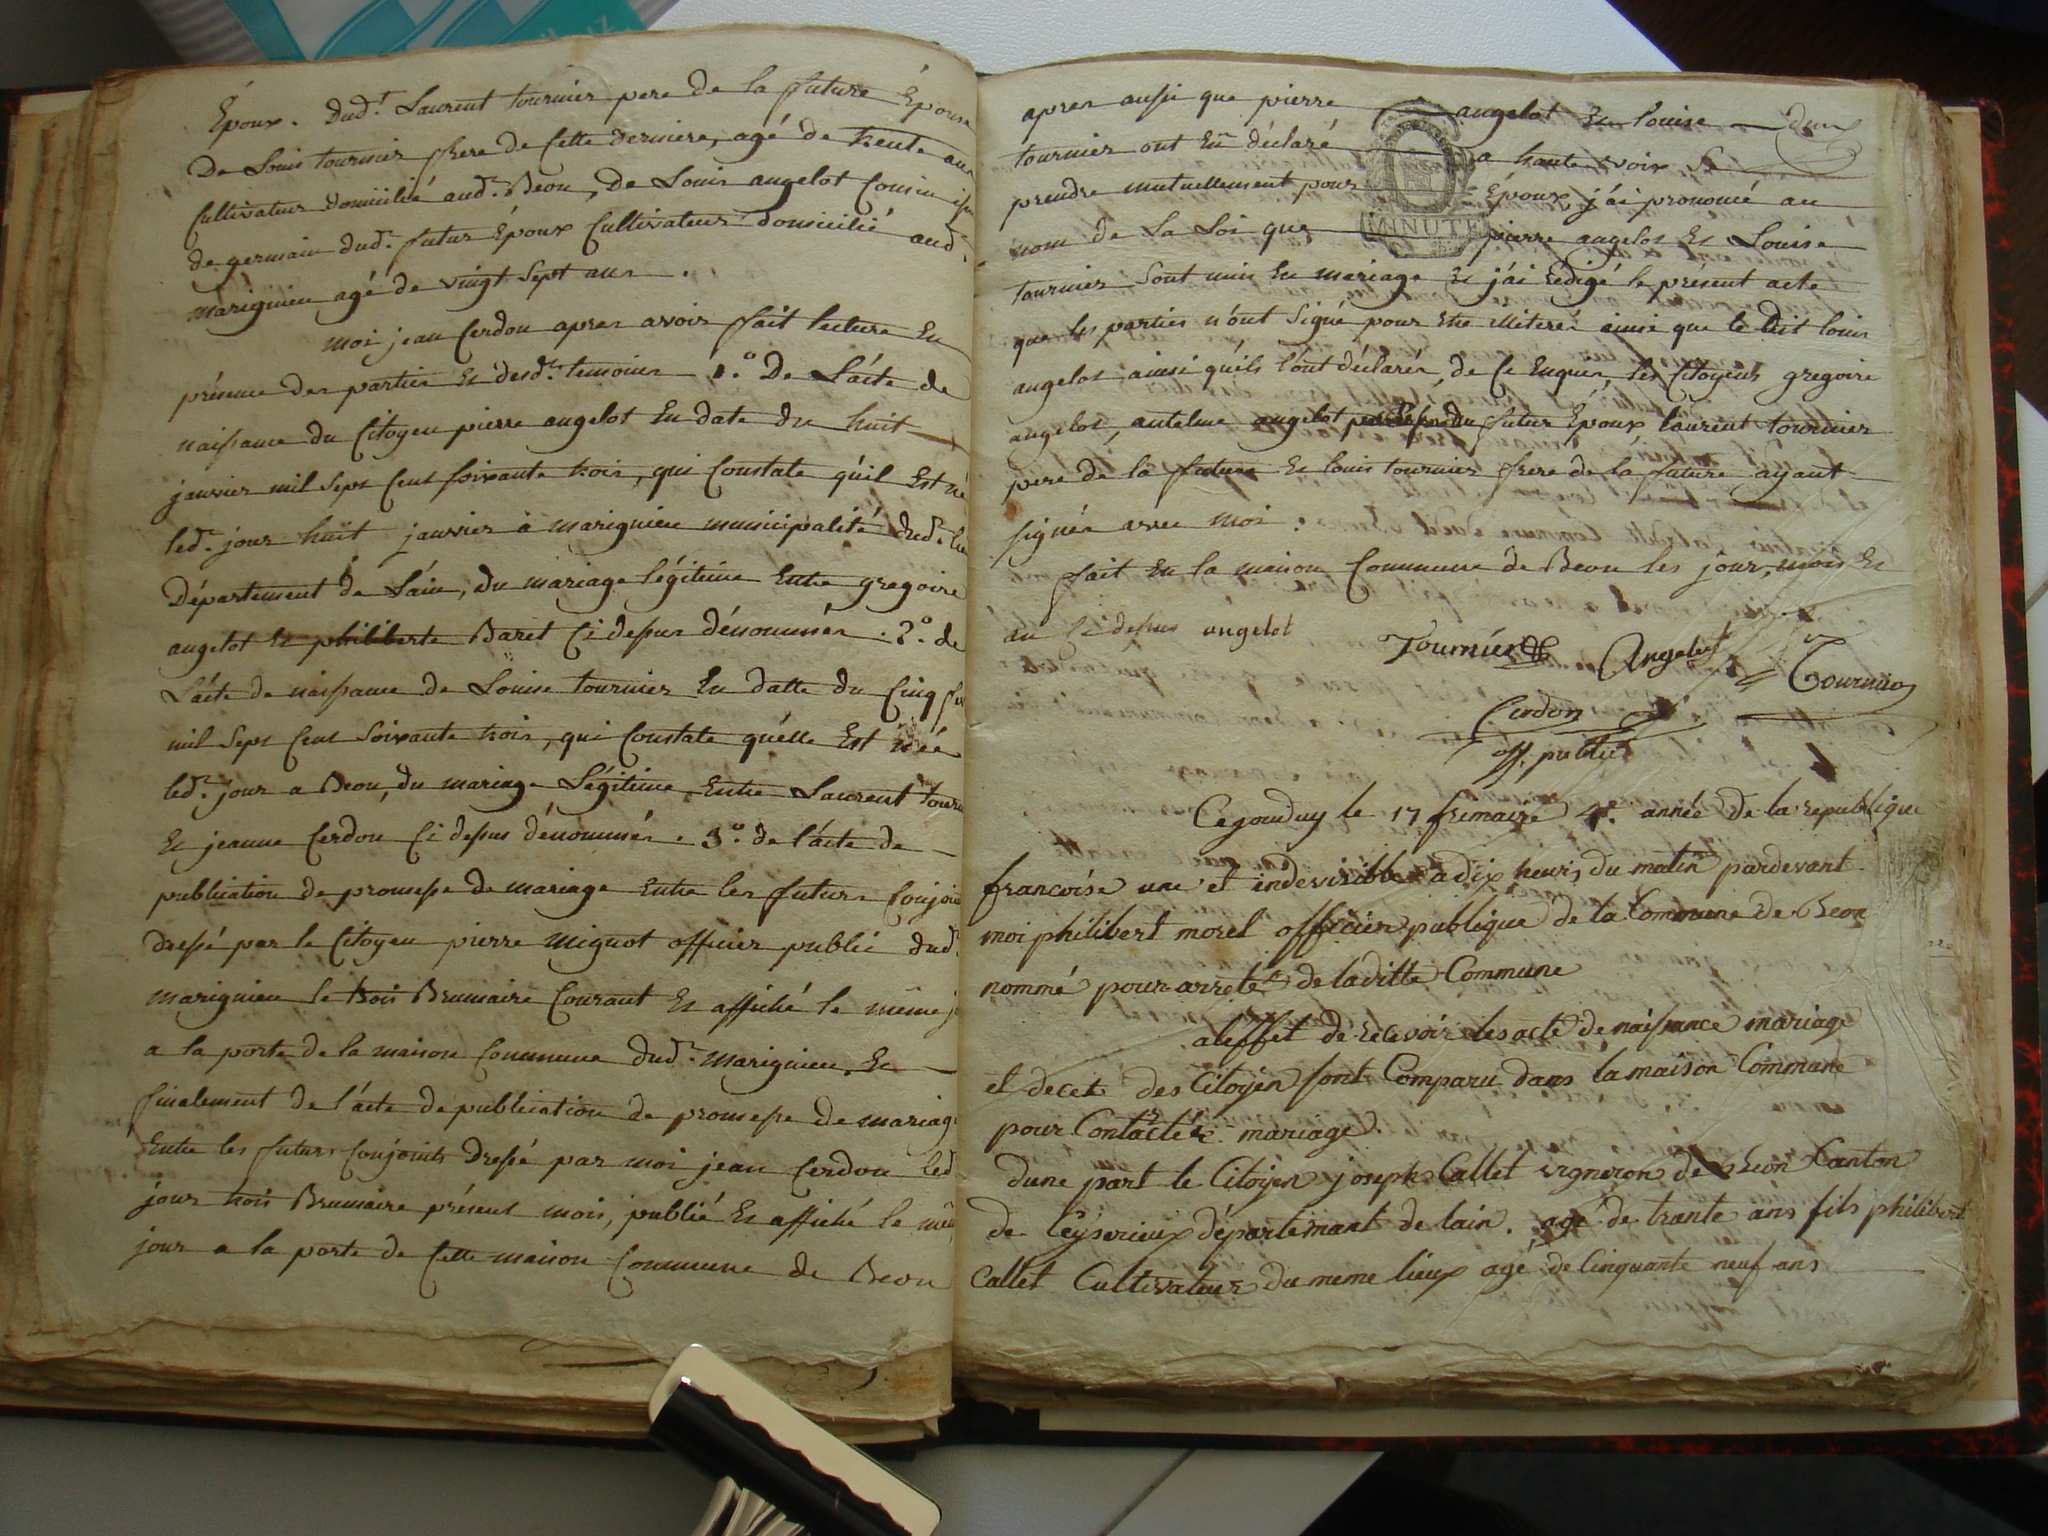 Époux. dudt. Laurent tournier pere de la future Épouse
De Louis tournier frere de Cette derniere, agé de trente ans
Cultivateur domicilié audt. Beon, de Louis angelot Cousin issu
de germain dudt. futur Époux Cultivateur domicilié audt.
marignieu agé de vingt sept ans.
moi jean Cerdon apres avoir fait lecture En
présence des parties Et desdts. temoins 1.° De L'acte de
naissance du Citoyen pierre angelot En date du huit
janvier mil sept Cent soixante trois, qui Constate qu'il Est né
ledt. jour huit janvier à marignieu municipalité dudt. lieu
Département de L'ain, du mariage légitime Entre gregoire
angelot Et philiberte Baret Ci dessus dénommés. 2.° de
L'acte de naissance de Louise tournier En datte du Cinq
mil sept Cent soixante trois, qui Constate qu'elle Est néé
ledt. jour a Beon, du mariage Légitime Entre Laurent tourn
Et jeanne Cerdon Ci dessus dénommés. 3.° de l'acte de
publication de promesse de mariage Entre les futurs Conjoin
dressé par le Citoyen pierre Miguot officier public dudt.
marignieu le trois Brumaire Courant Et affiché le même j
a la porte de la maison Commune dudt. marignieu, Et
finalement de l'acte de publication de promesse de mariage
Entre les futurs Conjoints dressé par moi jean Cerdon ledt.
jour trois Brumaire présent mois, publié Et affiché le mêm
jour a la porte de Cette maison Commune de Beon
apres aussi que pierre angelot Et louise
tournier ont Eu déclaré a haute voix se
prendre mutuellement pour Époux j'ai prononcé au
MINUTE
nom de La Loi que pierre angelot Et Louise
tournier sont unis En mariage Et j'ai rédigé le présent acte
que les parties n'ont signé pour Etre illiterés ainsi que le dit louis
angelot ainsi qu'ils l'ont déclarés, de Ce Enquis, les Citoyens gregoire
angelot, antelme angelot du futur Époux laurent tournier
pere de la future Et louis tournier frere de la future ayant
signés avec moi.
fait En la maison Commune de Beon les jour, mois Et
an Ci dessus angelot
Tournier Angelot Tournier
Cerdon
off. public
Cejourduy le 17 frimaire 4e. année de la republique
francoise une et indevisible a dix heures du matin pardevant
moi philibert morel officier publique de la Commune de Beon
nommé pour arreté de laditte Commune
aleffet de recevoir les acte de naissance mariage
et decet des Citoyen sont Comparu dans la maison Commune
pour Contracter mariage.
dune part le Citoyen joseph Callet vigneron de Beon Canton
de Ceyserieux départemant de lain. agé de trante ans fils philibert
Callet Cultivateur du meme lieux agé de Cinquante neuf ans